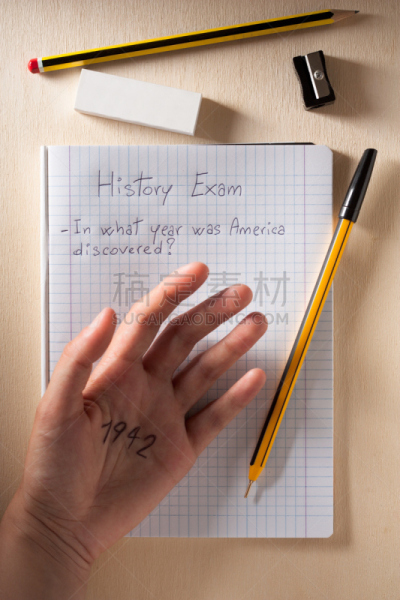 History Exam
- In what year was America
discovered?
稿定素材
SUCAI.GAODING.COM
1942